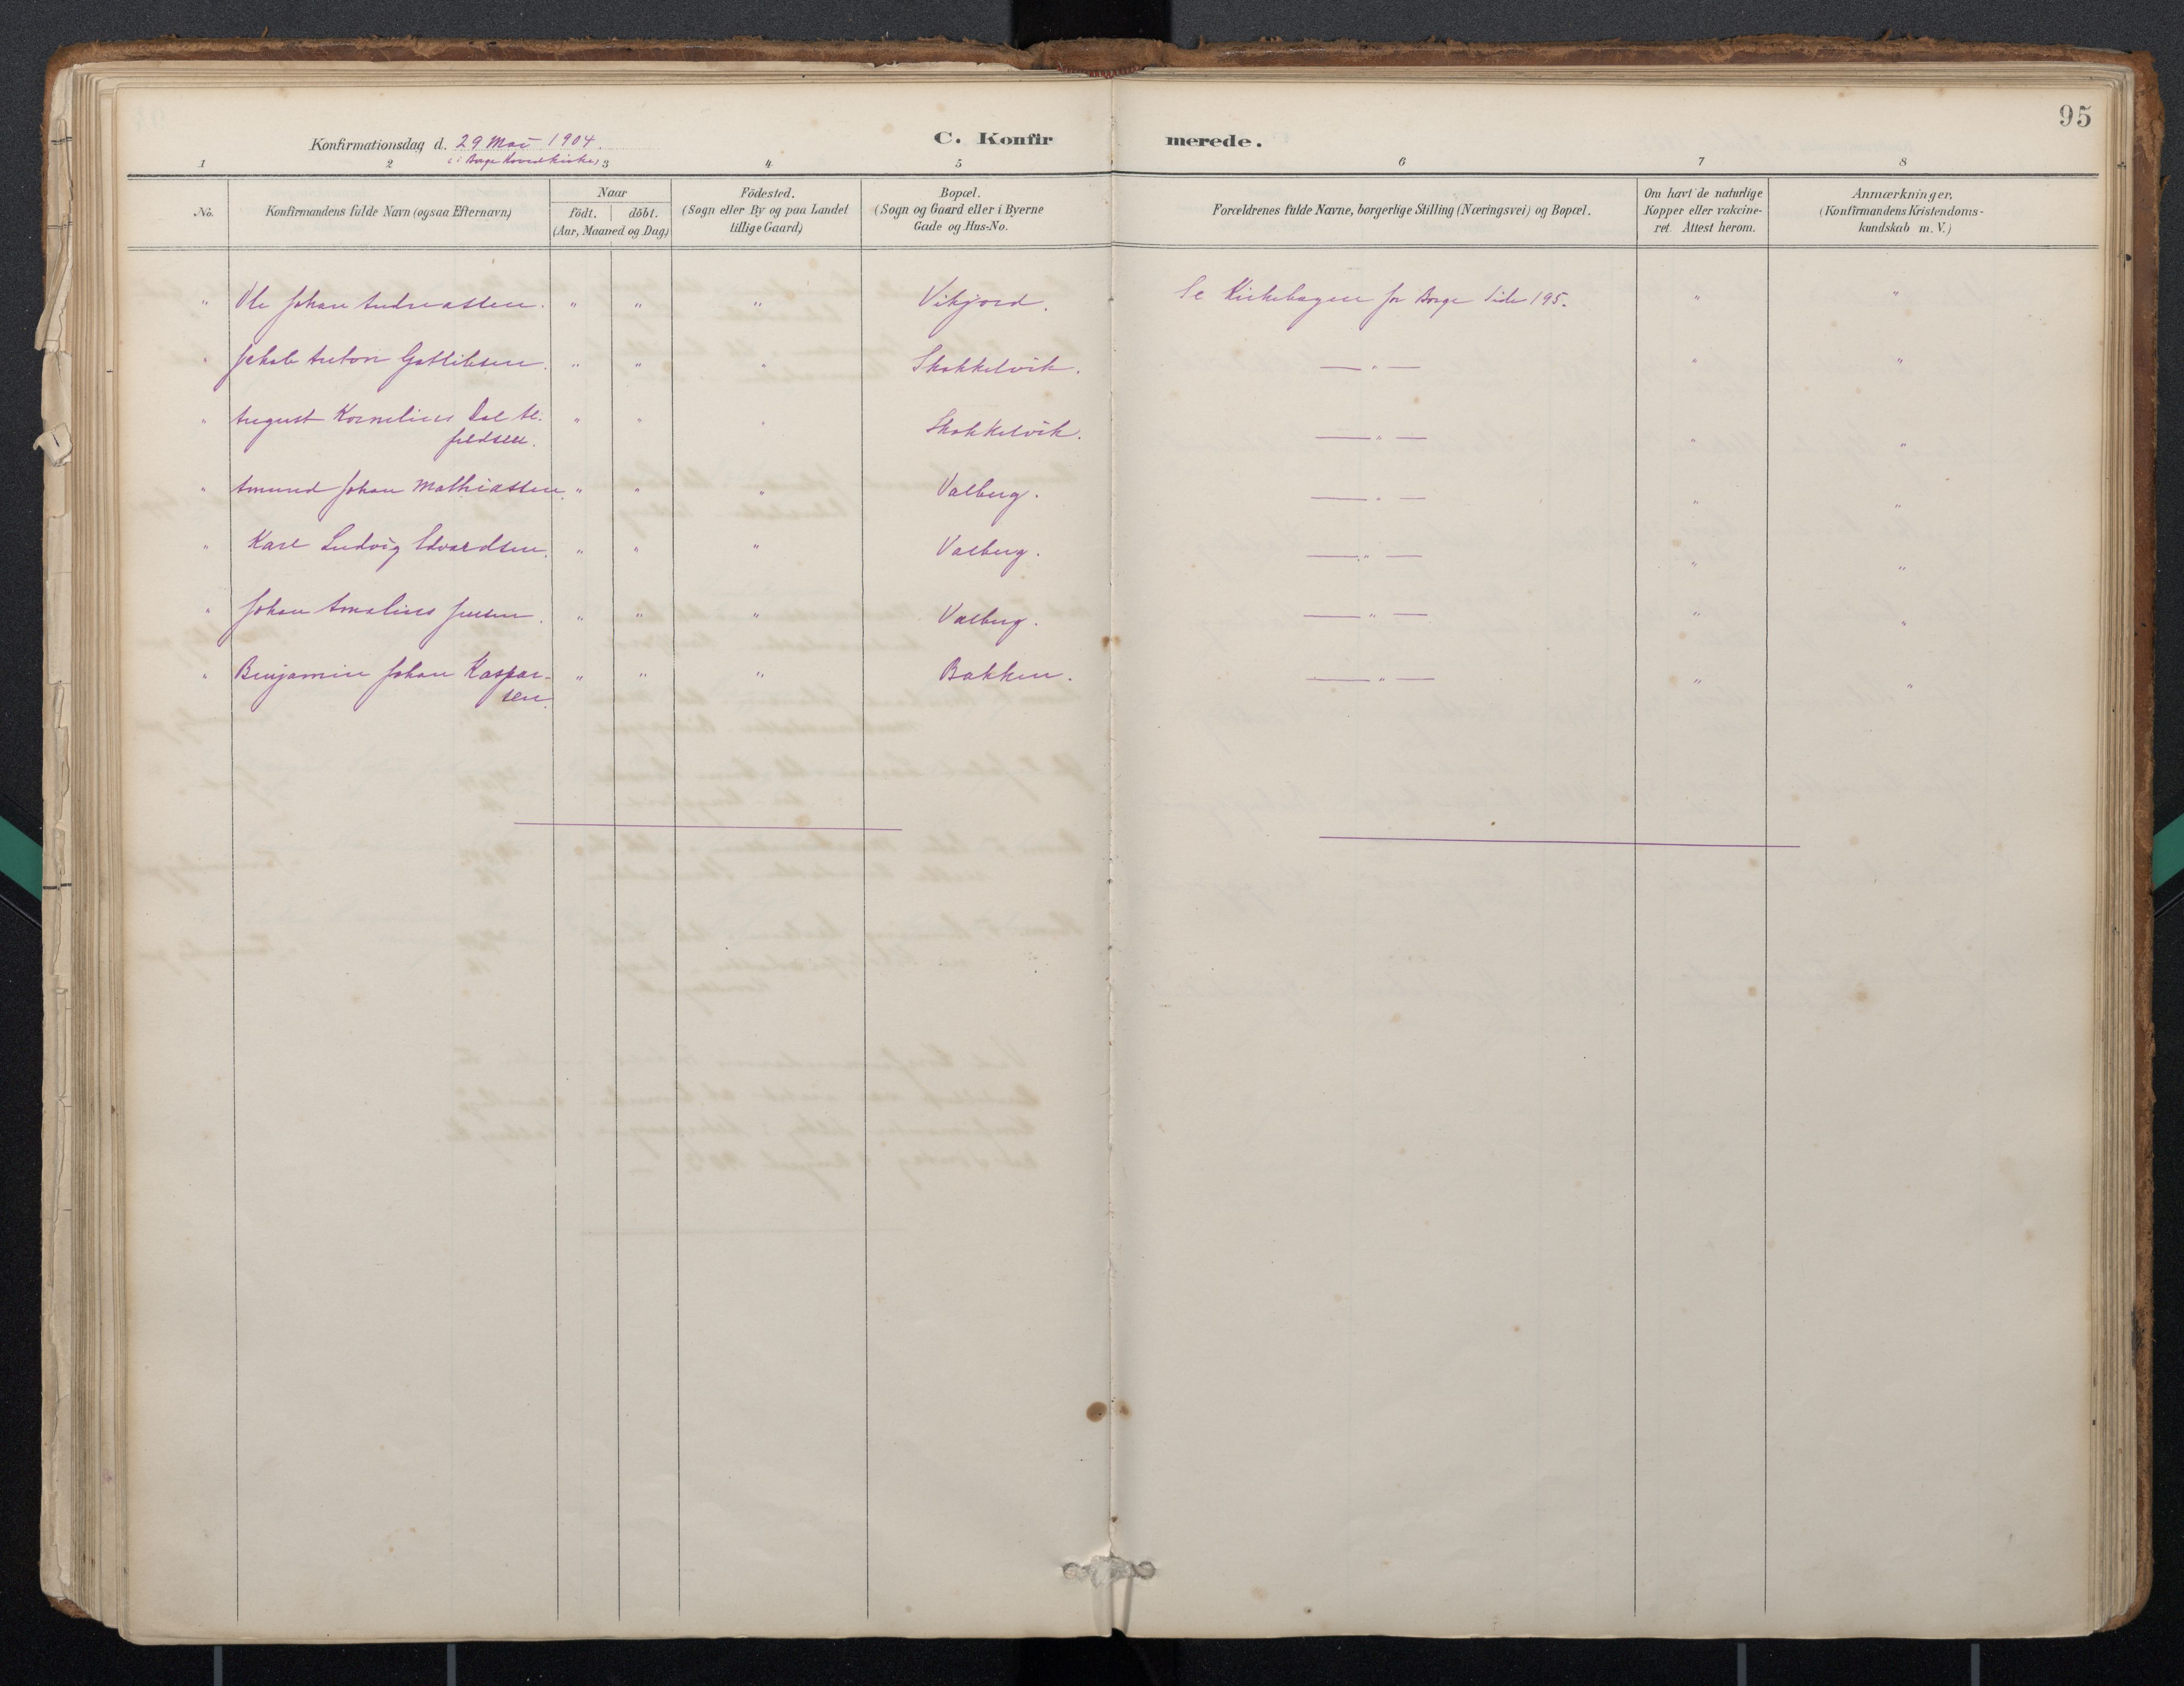 95
Konfirmationsdag d. 29 Mai 1904.
(i Borge Hovedkirke)
C. Konfirmerede.
1 2 3 4 5 6 7 8
No.
Konfirmandens fulde Navn (ogsaa Efternavn)
Naar
födt. döbt.
(Aar, Maaned og Dag)
Födested.
(Sogn eller By og paa Landet
tillige Gaard)
Bopæl.
(Sogn og Gaard eller i Byerne
Gade og Hus-No.
Forældrenes fulde Navne, borgerlige Stilling (Næringsvei) og Bopæl.
Om havt de naturlige
Kopper eller vakcine-
ret. Attest herom.
Anmærkninger,
(Konfirmandens Kristendoms-
kundskab m. V.)
" Ole Johan Andreassen. " " " Vikjord. Se Kirkebogen for Borge Side 195. " "
" Jakob Anton Gottlibsen. " " " Skokkelvik. — " — " "
" August Kornelius Dal Al- " " " Skokkelvik. — " — " "
feldsen.
" Amund Johan Mathiassen. " " " Valberg. — " — " "
" Karl Ludvig Edvardsen. " " " Valberg. — " — " "
" Johan Amalius Jensen. " " " Valberg. — " — " "
" Benjamin Johan Kaspar- " " " Bakken. — " — " "
sen.